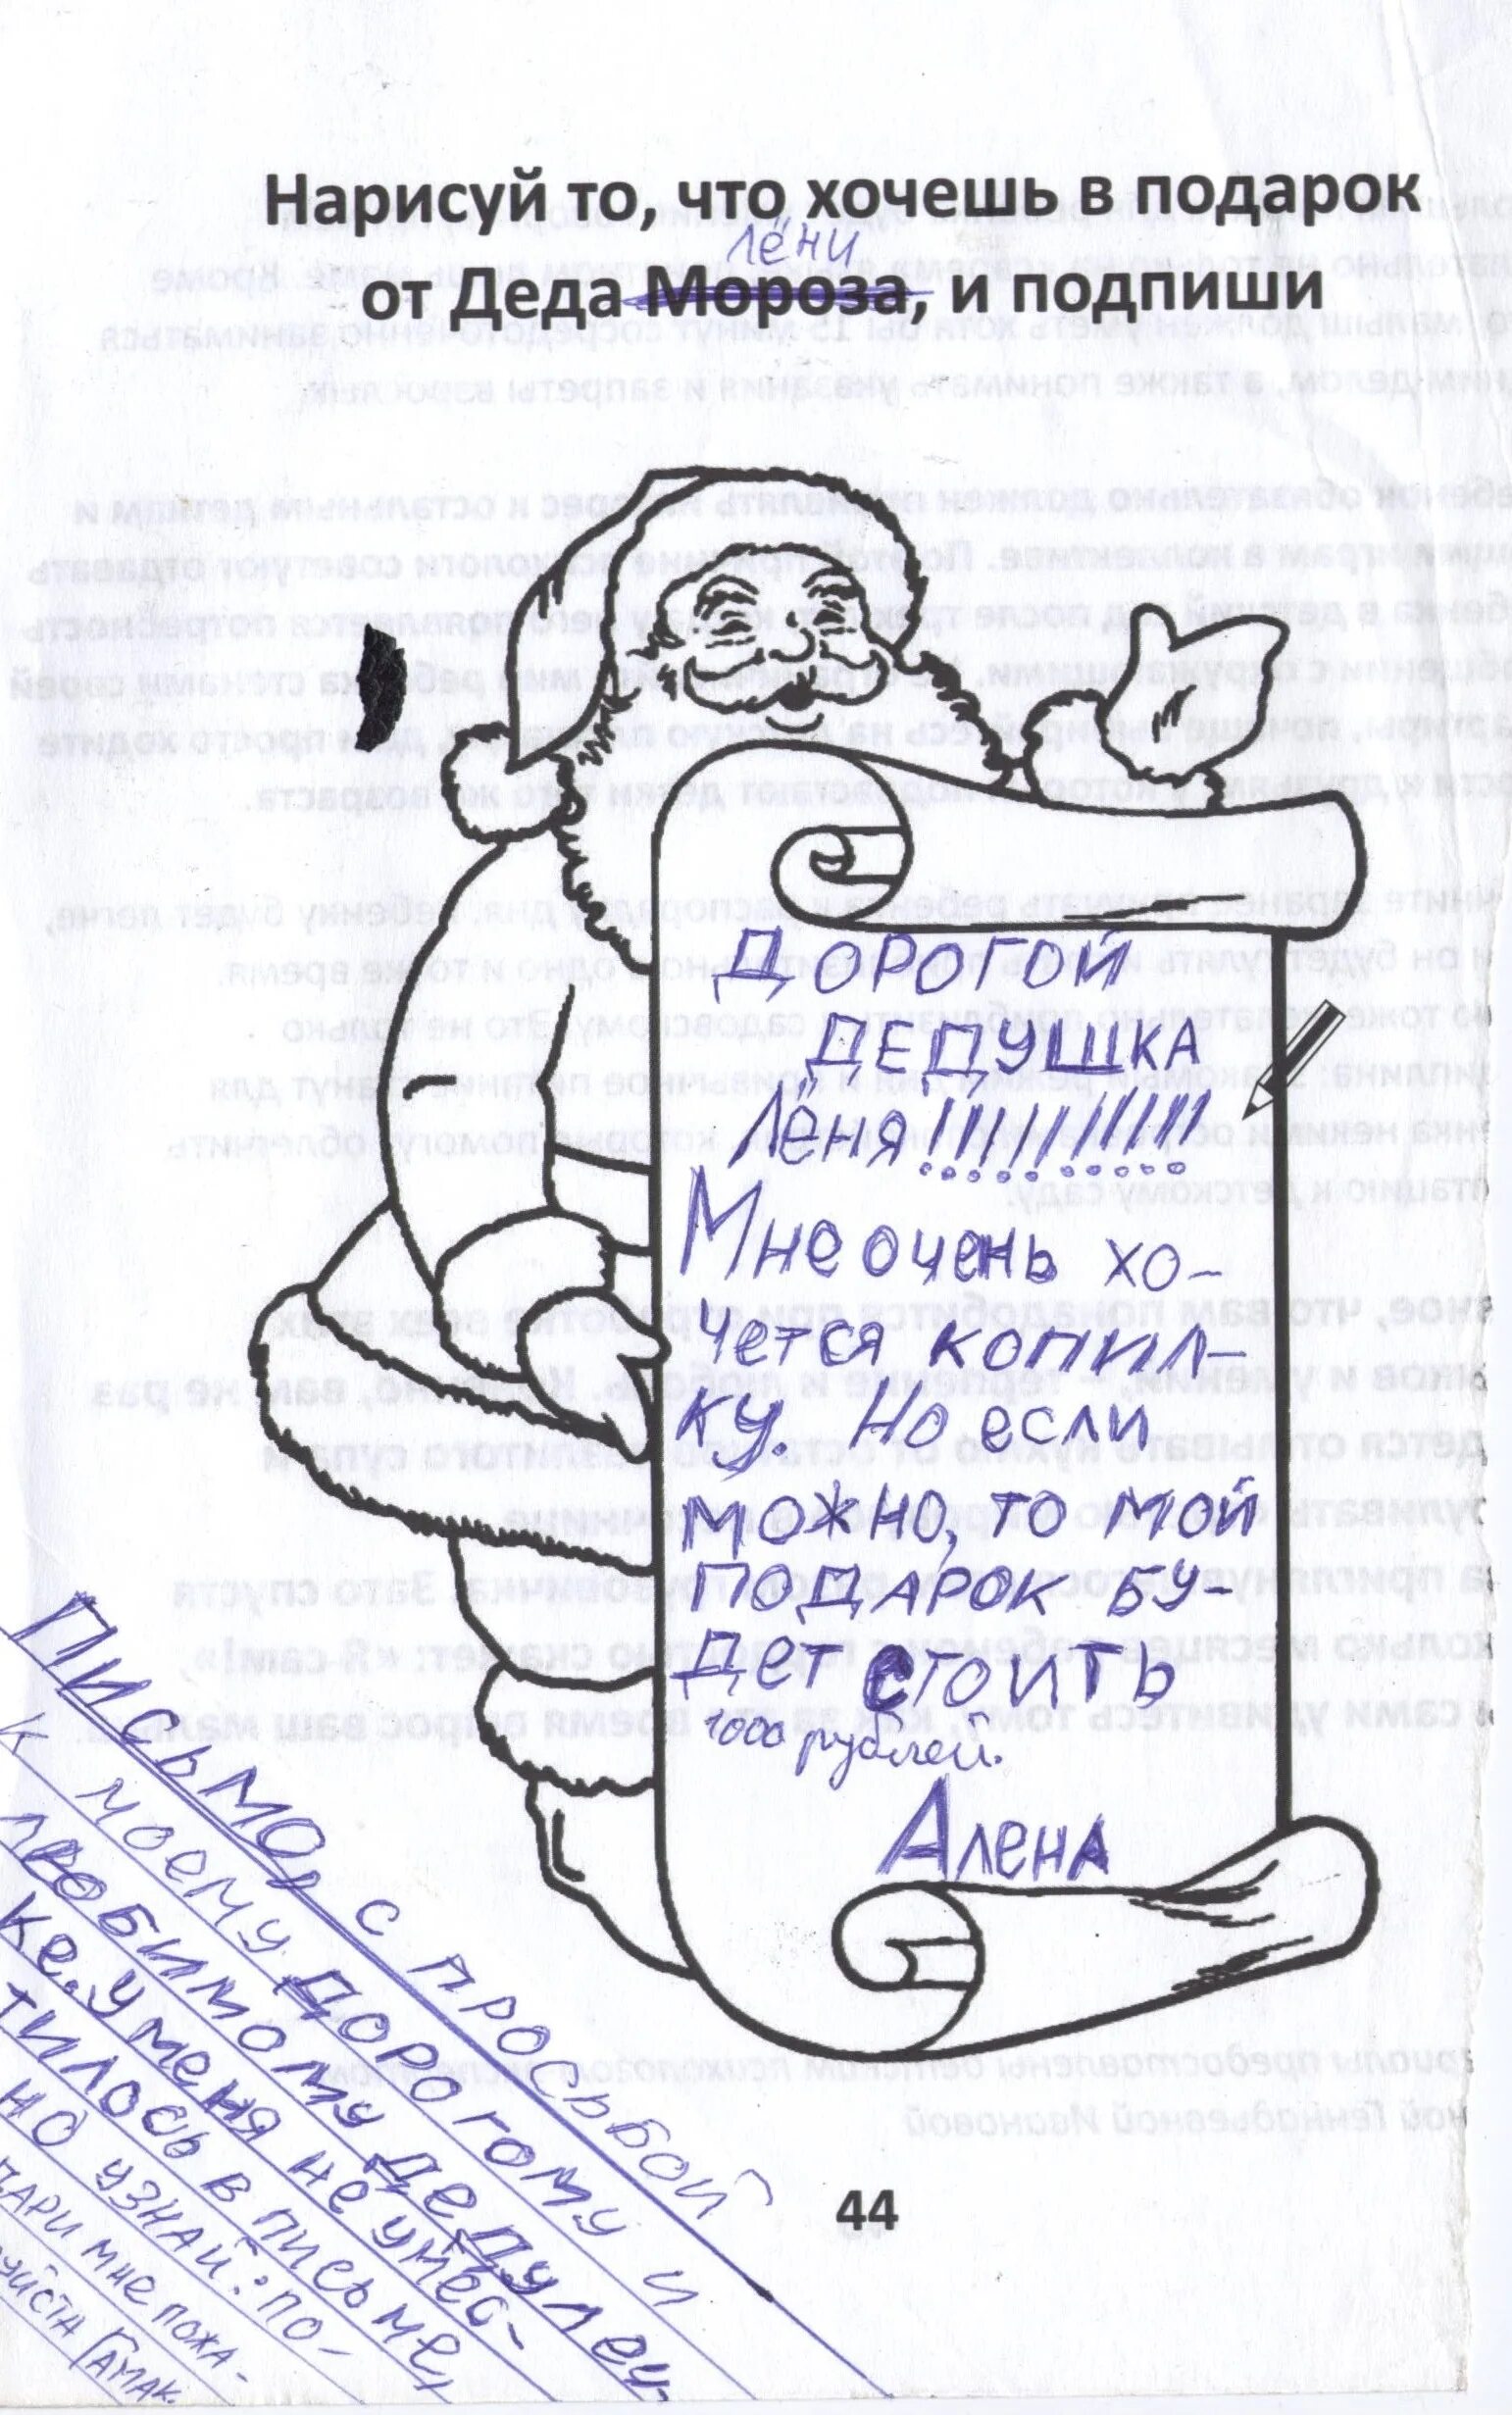 Нарисуй то, что хочешь в подарок
лёни
от Деда Мороза, и подпиши
ДОРОГОЙ
ДЕДУШКА
Лёня!!!!!!!!!!!
Мне очень хо-
чется копил-
ку. Но если
можно, то мой
ПОДАРОК БУ-
Дет стоить
1000 рублей.
Алена
Письмо, с просьбой
к моему ДОРОГОМУ и
любимому дедулеч-
ке. У меня не умес-
тилось в письме,
но узнай: по-
дари мне пожа-
уйста гамак.
44